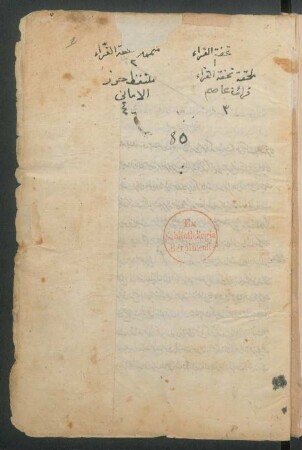 تحفة القراء
١
تحفة القراء
قراءة عاصم
٣
تحفة القراء
٢
ملتقط حوز
الاماني
٨٥
Ex
Biblioth. Regia
Berolinensi.